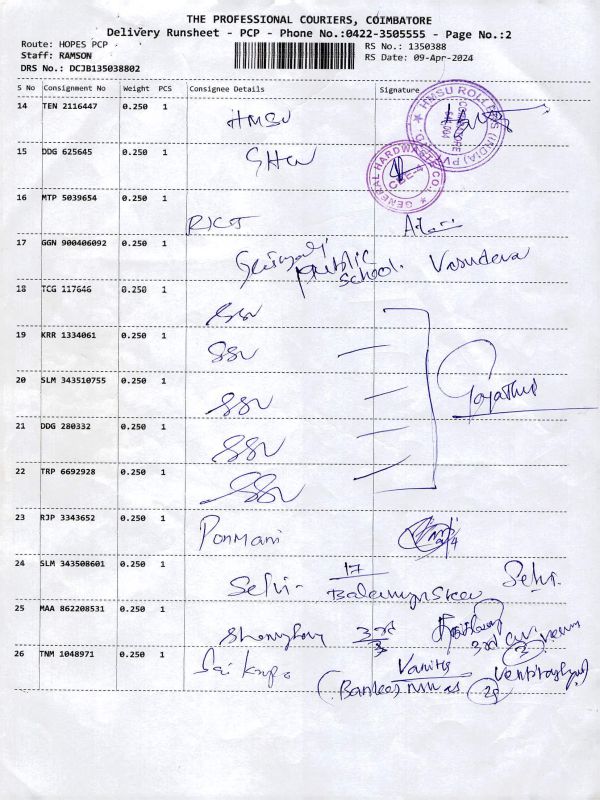 THE PROFESSIONAL COURIERS, COIMBATORE
Delivery Runsheet - PCP - Phone No.:0422-3505555 - Page No.:2
Route: HOPES PCP
RS No.: 1350388
Staff: RAMSON
RS Date: 09-Apr-2024
DRS No.: DCJB135038802
S No Consignment No Weight PCS Consignee Details Signature
14 TEN 2116447 0.250 1
HMSU
15 DDG 625645 0.250 1
GHW
GENERAL HARDWARE CO.
16 MTP 5039654 0.250 1
17 GGN 900406092 0.250 1
public school. Vasudeva
18 TCG 117646 0.250 1
SSV
19 KRR 1334061 0.250 1
SSV
20 SLM 343510755 0.250 1
SSV
21 DDG 280332 0.250 1
SSV
22 TRP 6692928 0.250 1
SSV
23 RJP 3343652 0.250 1
Ponmani
24 SLM 343508601 0.250 1
17
Selvi Selvi
25 MAA 862208531 0.250 1
3rd
3
26 TNM 1048971 0.250 1
Sai